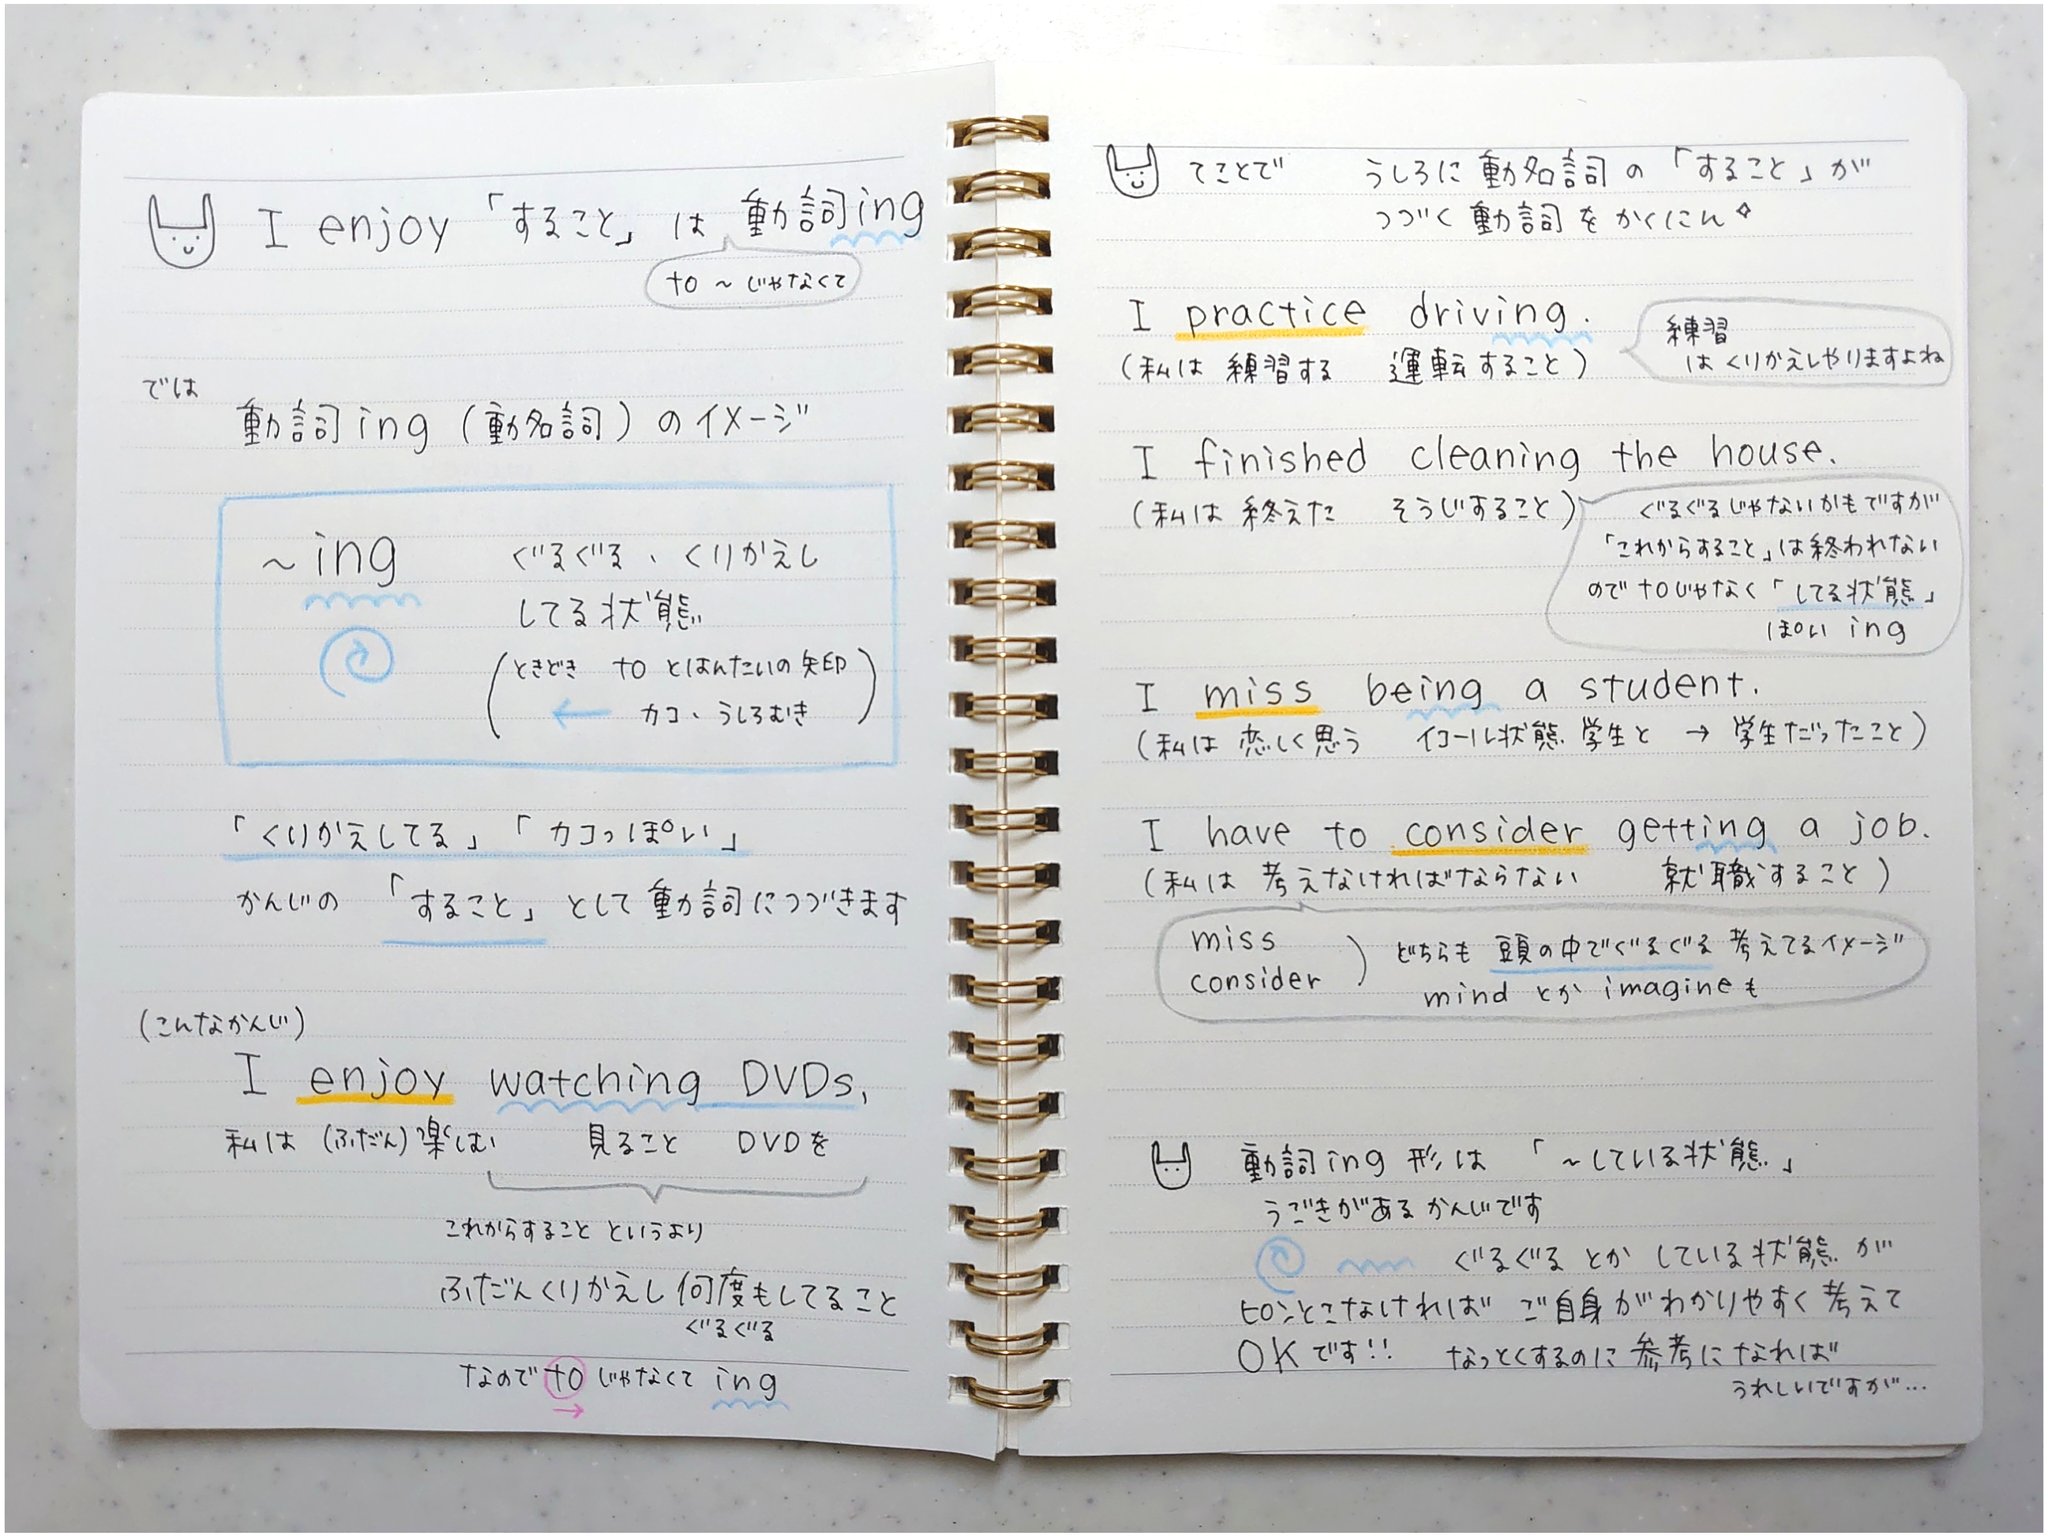 I enjoy 「すること」 は 動詞ing
to 〜 じゃなくて
では
動詞ing (動名詞) のイメージ
〜ing ぐるぐる、くりかえし
してる状態
(ときどき to とはんたいの矢印
← カコ、うしろむき)
「くりかえしてる」「カコっぽい」
かんじの 「すること」 として動詞につづきます
(こんなかんじ)
I enjoy watching DVDs.
私は (ふだん) 楽しむ 見ること DVDを
これからすること というより
ふだんくりかえし何度もしてること
ぐるぐる
なので to じゃなくて ing
→
てことで うしろに動名詞の「すること」が
つづく動詞をかくにん
I practice driving.
(私は 練習する 運転すること)
練習
はくりかえしやりますよね
I finished cleaning the house.
(私は 終えた そうじすること)
ぐるぐるじゃないかもですが
「これからすること」は終われない
ので toじゃなく「してる状態」
ぽい ing
I miss being a student.
(私は 恋しく思う イコール状態 学生と → 学生だったこと)
I have to consider getting a job.
(私は 考えなければならない 就職すること)
miss
consider
) どちらも 頭の中でぐるぐる 考えてるイメージ
mind とか imagine も
動詞ing 形は 「〜している状態」
うごきがあるかんじです
ぐるぐる とか している状態が
ピンとこなければ ご自身がわかりやすく考えて
OKです!! なっとくするのに参考になれば
うれしいですが…